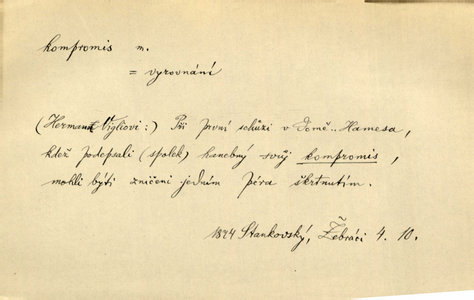 kompromis m.
= vyrovnání
(Hermann Vigliovi:) Při první schůzi v domě .. Hamesa,
kdež podepsali (spolek) hanebný svůj kompromis,
mohli býti zničeni jedním péra škrtnutím.
1874 Stankovský, Žebráci 4. 10.